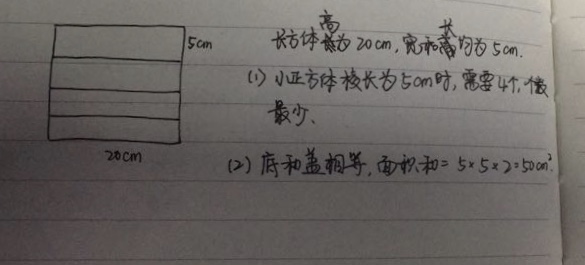 高 长
长方体为20cm,宽和均为5cm.
5cm
(1) 小正方体棱长为5cm时,需要4个,个数
最少、
20cm
(2) 底和盖相等,面积和=5×5×2=50cm².